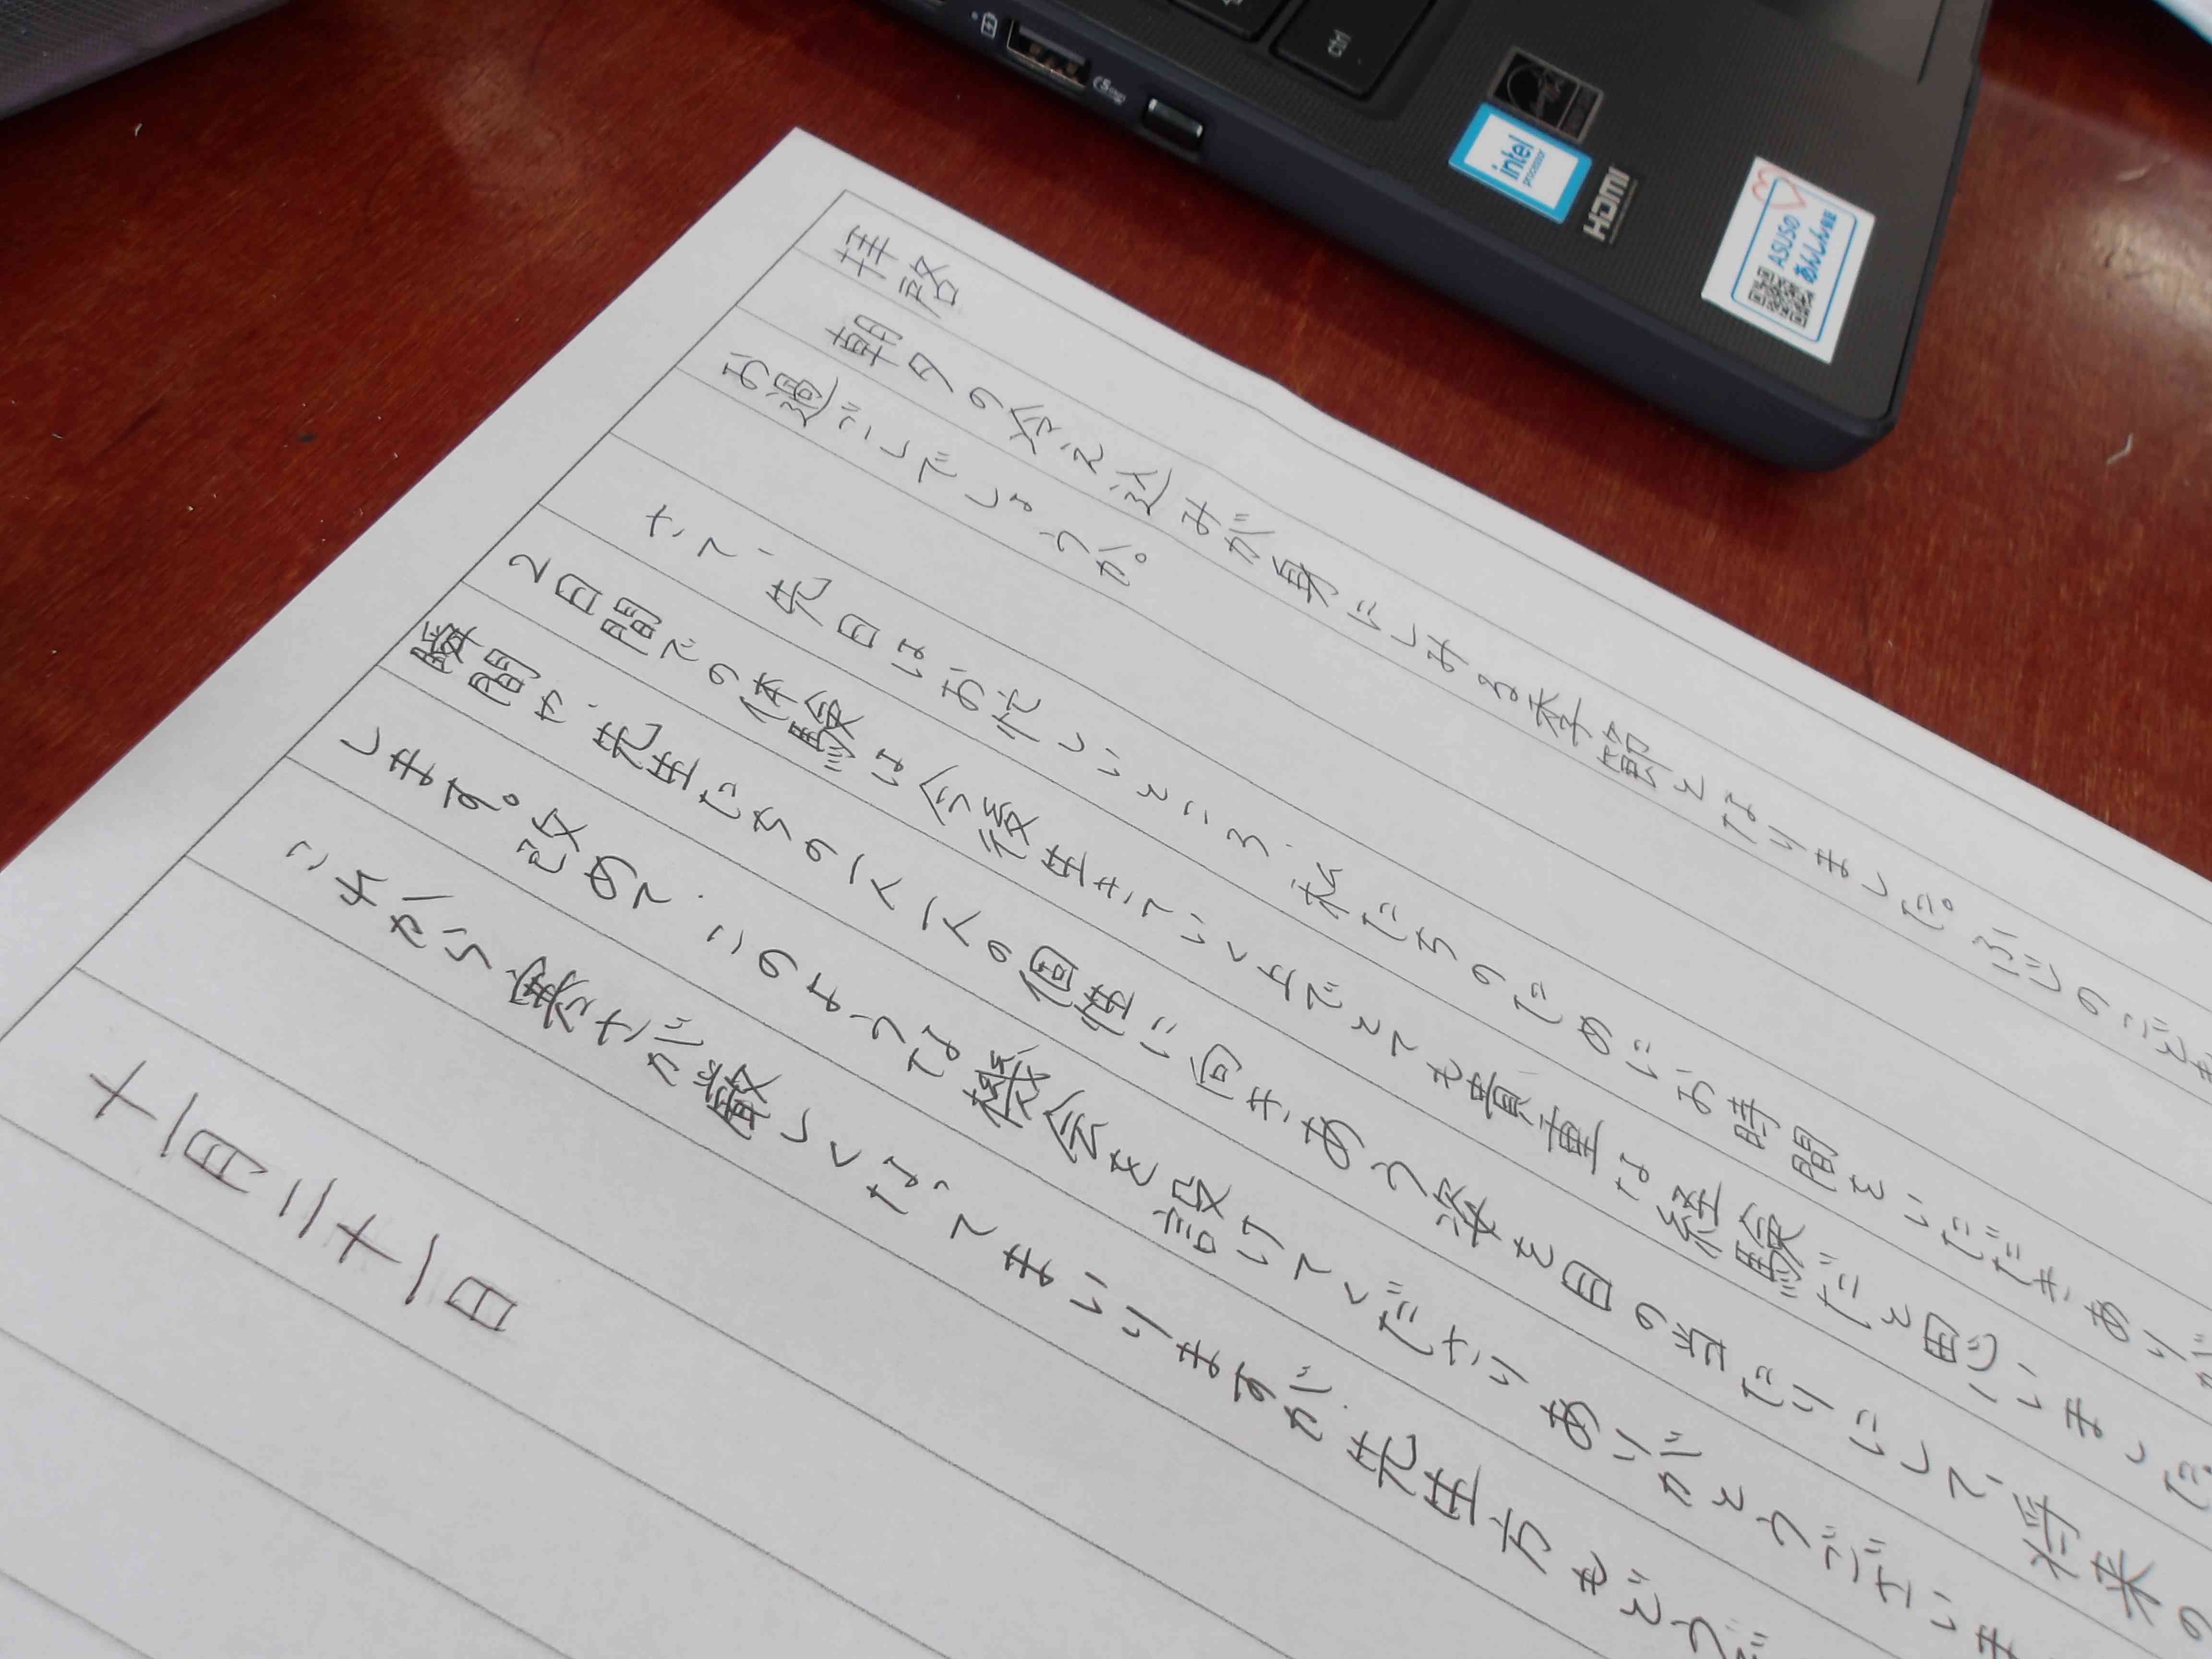 拝啓
朝夕の冷え込みが身にしみる季節となりました。
お過ごしでしょうか。
さて、先日はお忙しいところ、私たちのためにお時間をいただきあり
2日間での体験は今後生きていく上でとても貴重な経験だと思いました
瞬間や、先生たちの一人一人の個性に向きあう姿を目の当たりにして、将来の
します。改めて、このような機会を設けてくださりありがとうございま
これから寒さが厳しくなってまいりますが、先生方もどうぞ
十一月二十一日
ctrl
intel
processor
HDMI
ASUSの
あんしん保証